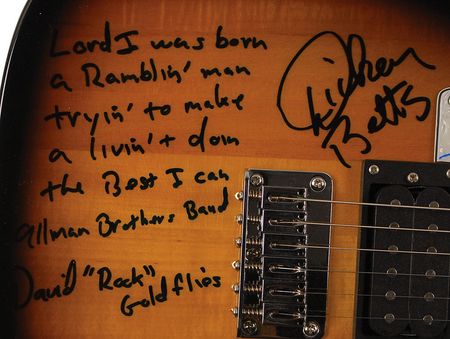 Lord I was born
a Ramblin' man
tryin' to make
a livin' + doin
the Best I can
Allman Brothers Band
David "Rook" Goldflies
Dickey
Betts